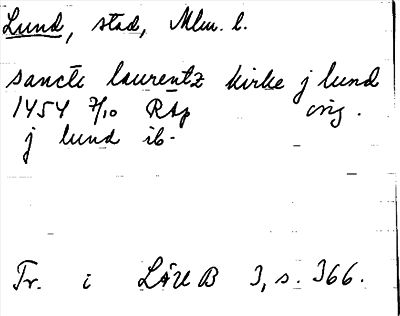 Lund, stad, Mlm. l.
sancte laurentz kirke j lund
1454 7/10 RAp orig.
j lund ib.
Tr. i LÄUB 3, s. 366.